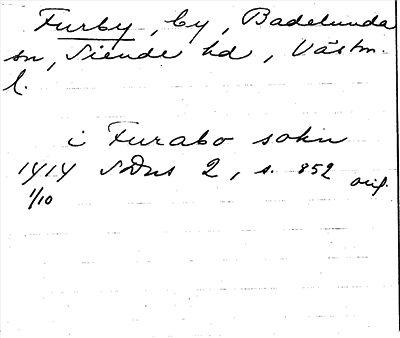 Furby, by, Badelunda
sn, Siende hd, Västm.
l.
i Furabo sokn
1414 SDns 2, s. 852 orig.
1/10